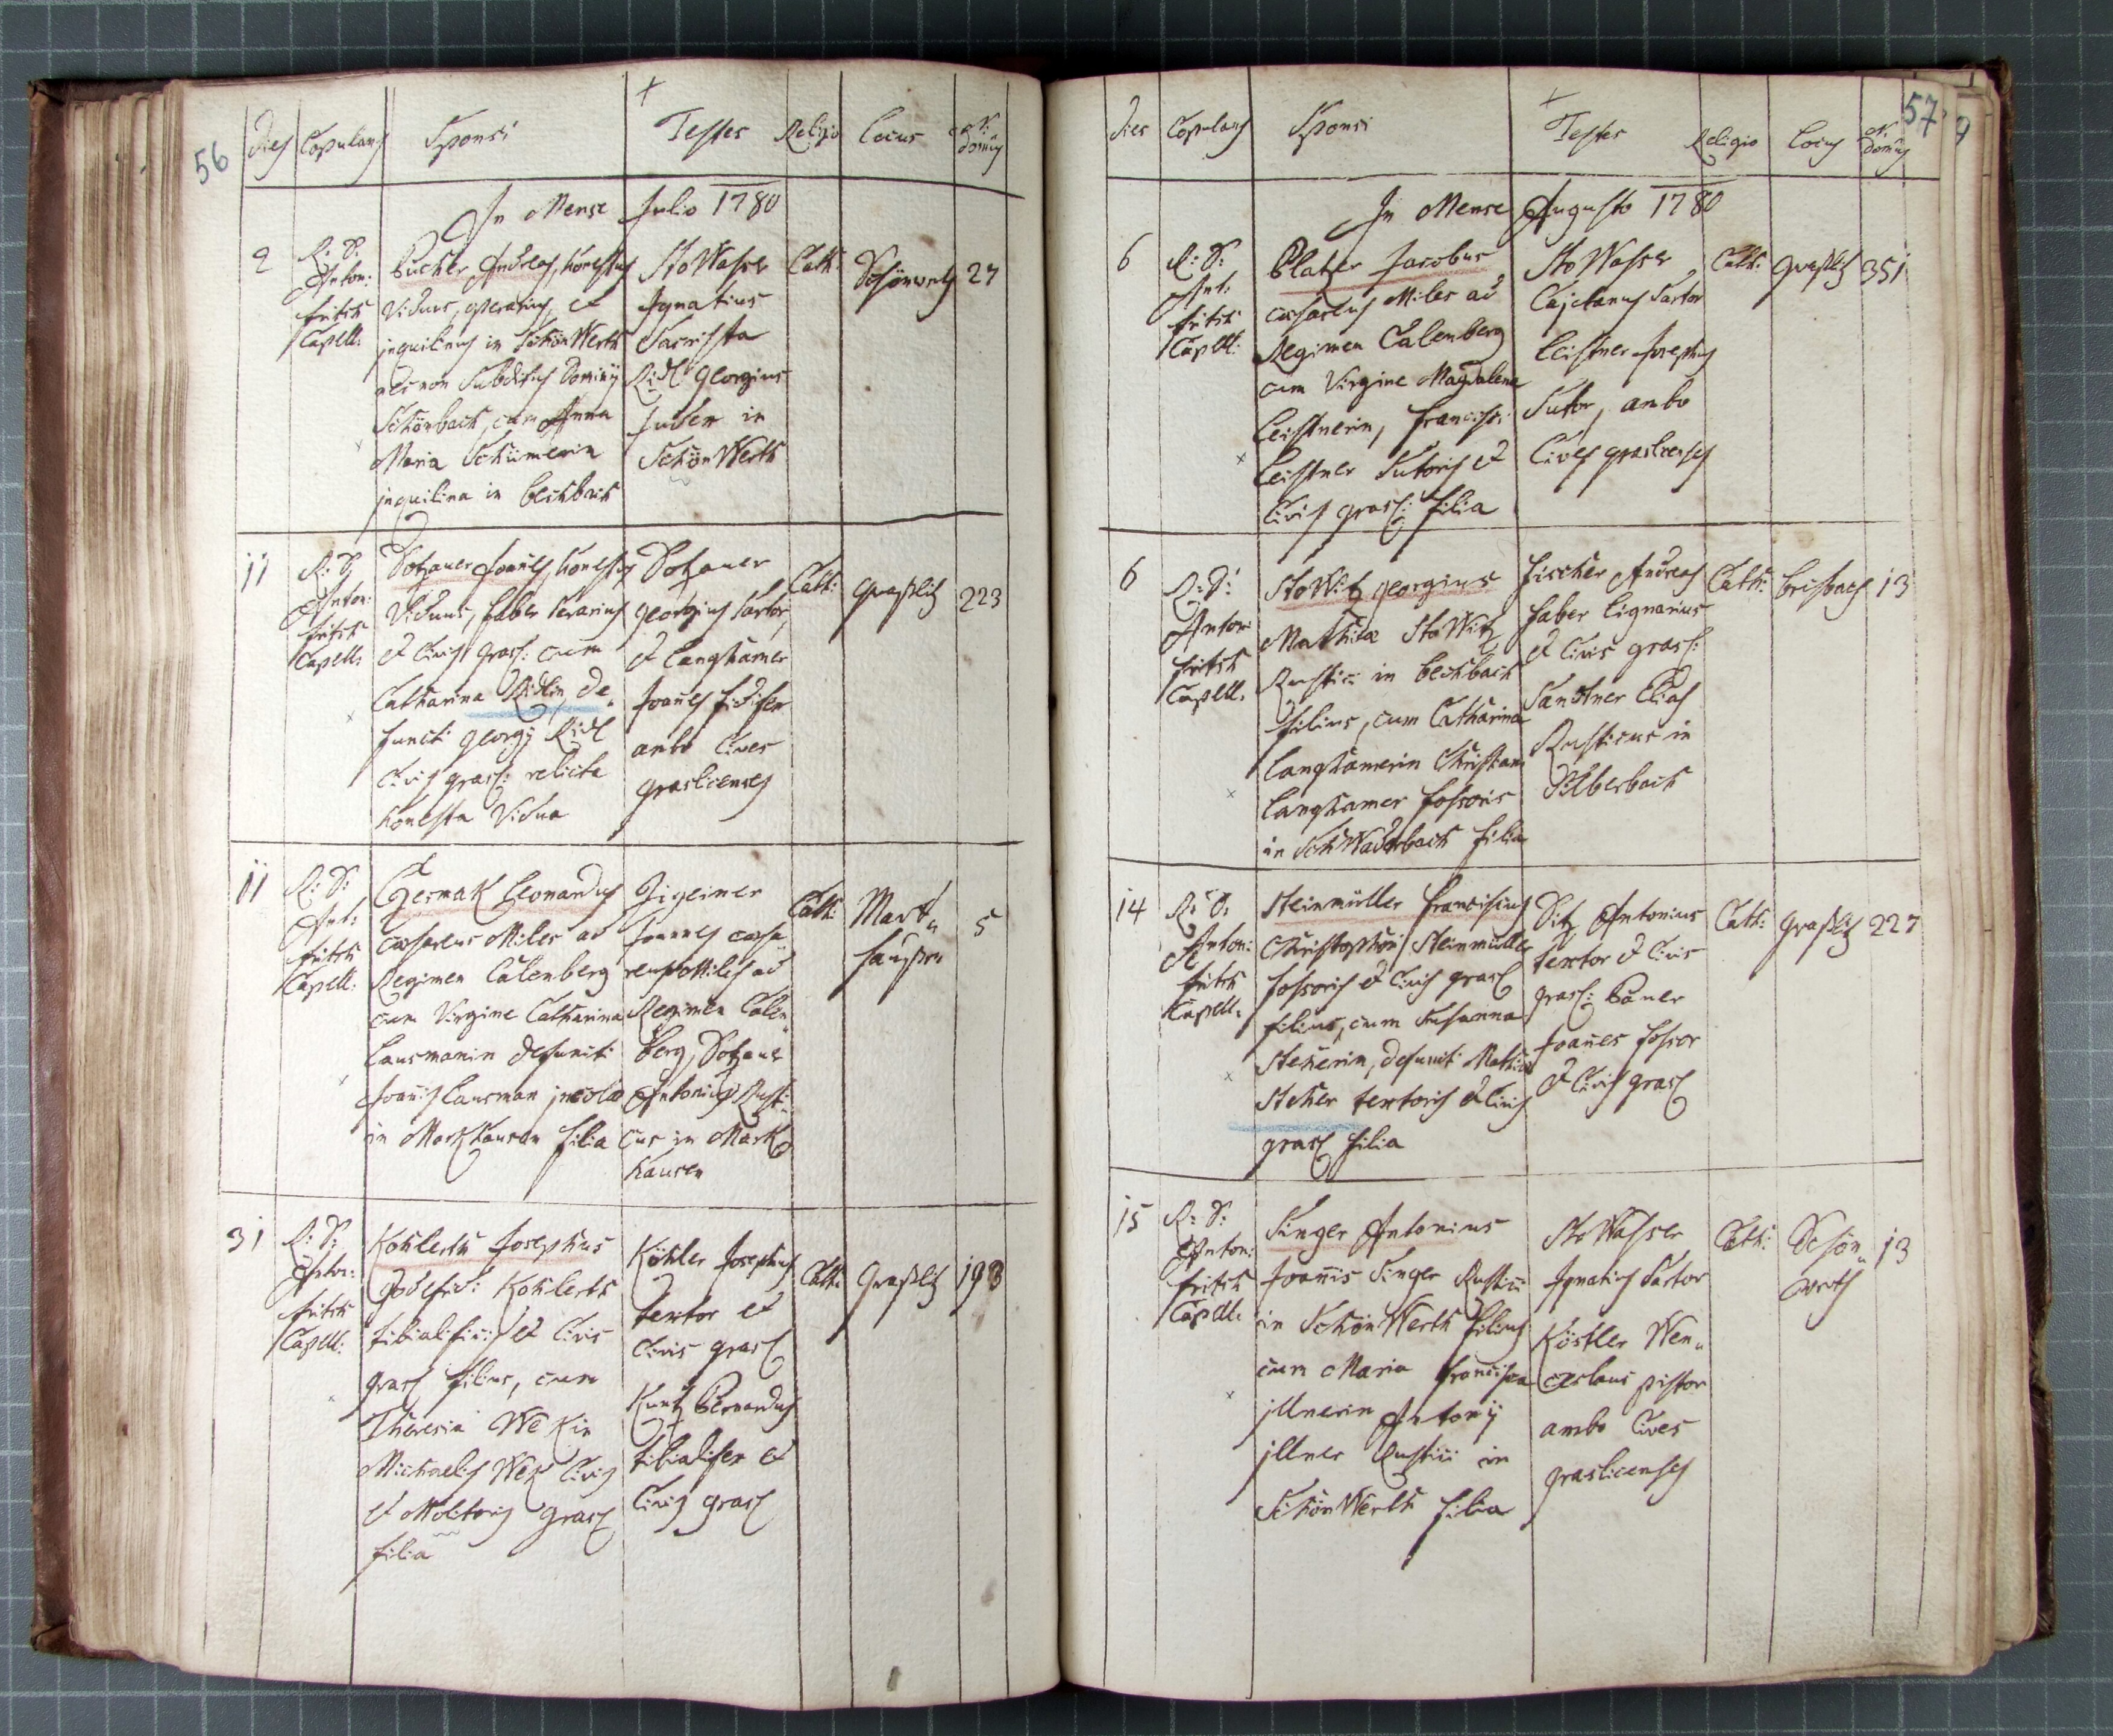 56
Dies Copulans Sponsi Testes Religio Locus N: domus
In Mense Julio 1780
2
R: D:
Anton:
Fritsch
Capell:
Bucher Andreas, honestus
Viduus, operarius, et
inquilinus in SchönWerth
Subditus Dominij
Schönbach, cum Anna
Maria
inquilina in
StoWasser
Ignatius
Sacrista
Ridl Georgius
Judex in
SchönWerth
Cath:
Schönwerth
27
11
R: D:
Anton:
Fritsch
Capell:
Dotzauer Joannes, honestus
Viduus, faber serarius
et Civis grasl: cum
Catharina Ridlin de„
functi Georgij Ridl
Civis grasl: relicta
honesta Vidua
Dotzauer
Georgius Sartor,
et Langhamer
Joannes
ambo Cives
graslicenses
Cath:
Graßlitz
223
11
R: D:
Ant:
Fritsch
Capell:
Czermak Leonardus
caesareus Miles ad
Regimen Calenberg
cum Virgine Catharina
Lausmanin defuncti
Joannis Lausman incolae
in Markhausen filia
Zigeiner
Joannes caesa
reus Miles ad
Regimen Calen„
berg, Dotzauer
Antonius Rusti„
cus in Mark
hausen
Cath:
Mark„
hausen
5
31
R: D:
Anton:
Fritsch
Capell:
Kohlerth Josephus
Godefridi Kohlerth
tibialificis et Civis
grasl filius, cum
Theresia
Michaelis Civis
et Molitoris grasl
filia
Köhler Josephus
textor et
Civis grasl
Kuntz Bernardus
tibialifex et
Civis grasl
Cath:
Graßlitz
193
57
Dies Copulans Sponsi Testes Religio Locus N. domus
In Mense Augusto 1780
6
R: D:
Ant:
Fritsch
Capell:
Platzer Jacobus
caesareus Miles ad
Regimen Calenberg
cum Virgine Magdalena
Leistnerin, Francisci
Leistner Sutoris et
Civis grasl: filia
StoWasser
Cajetanus Sartor
Leistner Josephus
Sutor, ambo
Cives graslicenses
Cath:
Graßlitz
351
6
R: D:
Anton:
Fritsch
Capell:
StoWitz Georgius
Mathiae StoWitz
Rustici in
filius, cum Catharina
Langhamerin Christiani
Langhamer fossoris
in SchWaderbach filia
Fischer Andreas
faber lignarius
et Civis grasl:
Sandner Elias
Rusticus in
Silberbach
Cath:
13
14
R: D:
Anton:
Fritsch
Capell:
Steinmüller Franciscus
Christophori Steinmüller
fossoris et Civis grasl
filius, cum Susanna
defuncti Mathiae
textoris et Civis
grasl filia
Antonius
textor et Civis
grasl: Bauer
Joannes fossor
et Civis grasl
Cath:
Graßlitz
227
15
R: D:
Anton:
Fritsch
Capell:
Singer Antonius
Joannis Singer Rustici
in SchönWerth filius
cum Maria Francisca
illnerin Antonij
illner Rustici in
SchönWerth filia
StoWasser
Ignatius Sartor
Köstler Wen„
ceslaus pistor
ambo Cives
graslicenses
Cath:
Schön„
werth
13